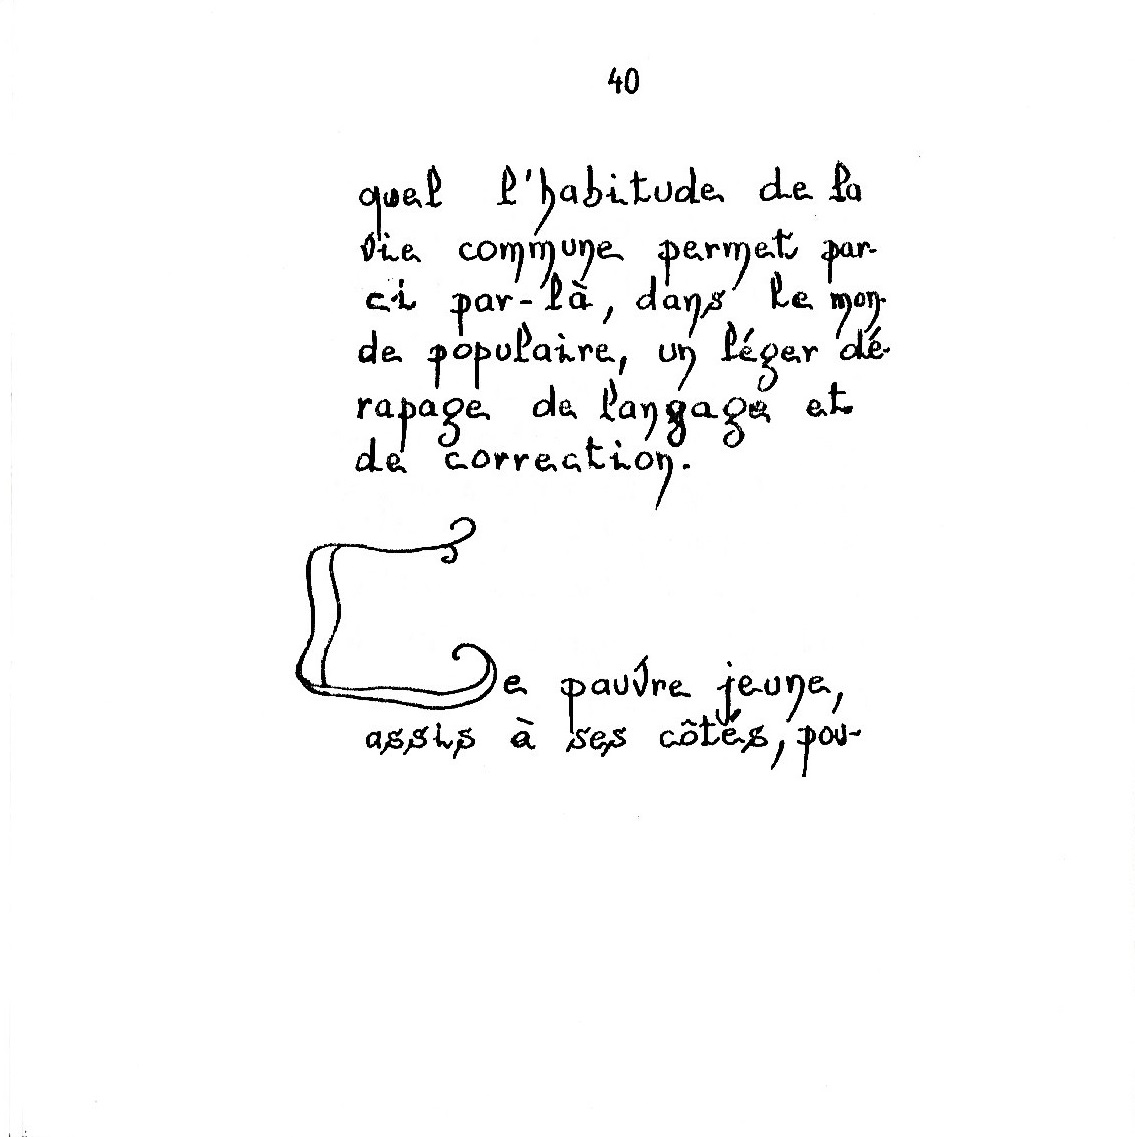 40
quel l'habitude de la
vie commune permet par-
ci par-là, dans le mon-
de populaire, un léger dé-
rapage de langage et
de correction.
Ce pauvre jeune,
assis à ses côtés, pou-